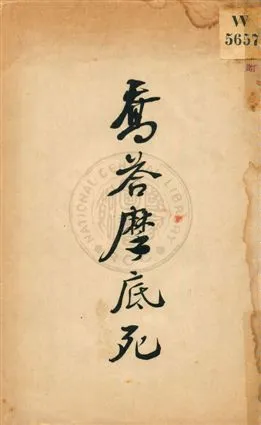 W
5657
喬答摩底死
NATIONAL CENTRAL LIBRARY